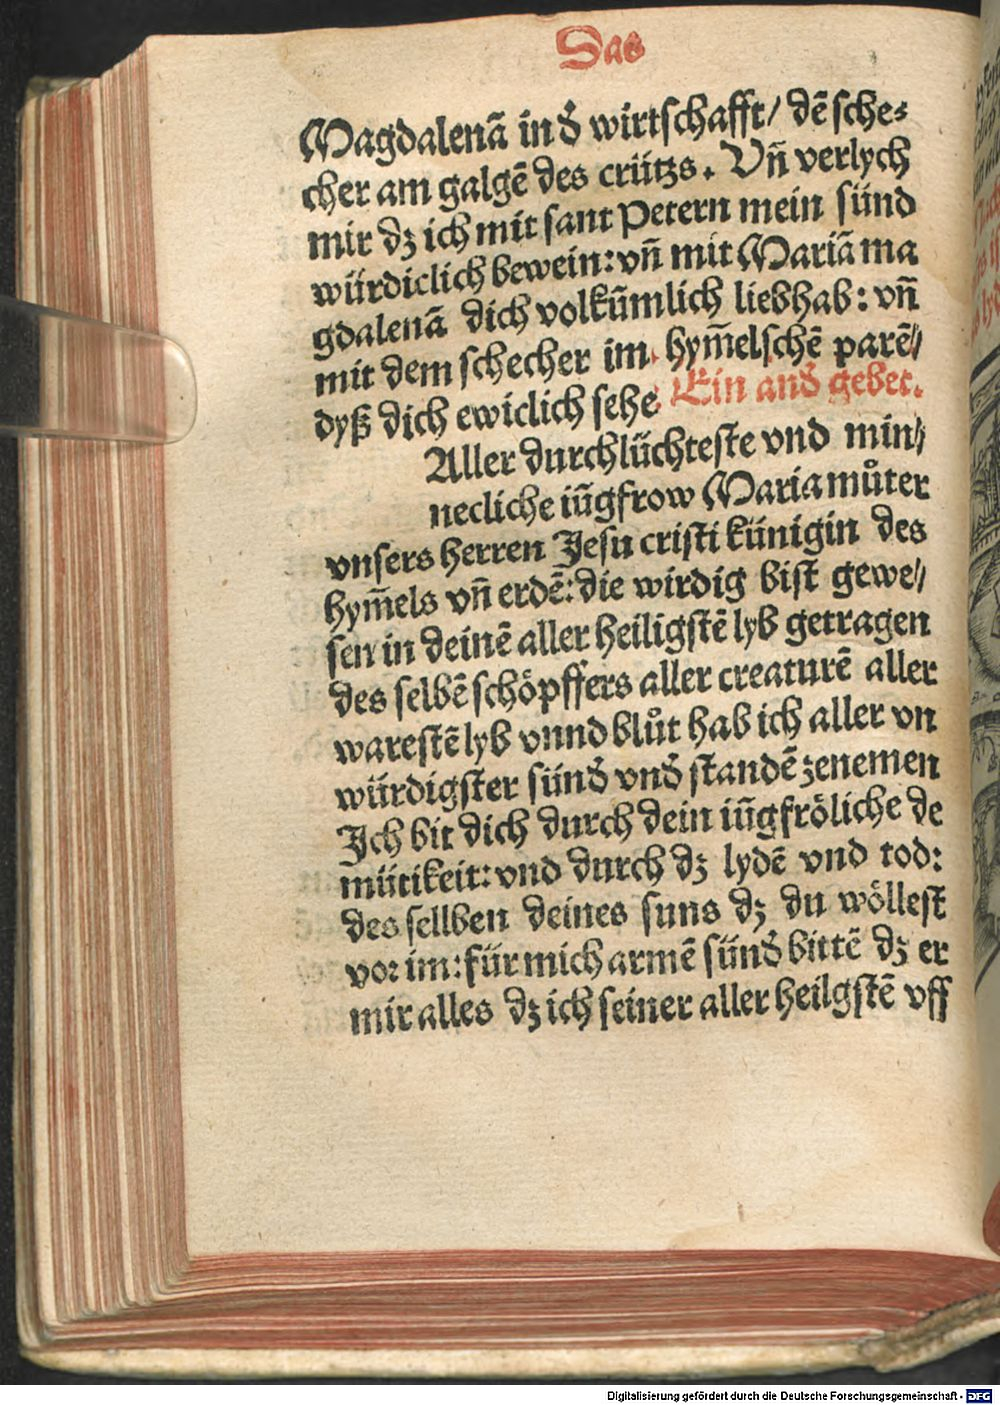 Das
Magdalenā in đ wirtschafft/ dē sche⸗
cher am galgē des crützs. Vñ verlych
mir dʒ ich mit sant Petern mein sünd
würdiclich bewein: vñ mit Mariā ma
gdalenā dich volkūmlich liebhab: vñ
mit dem schecher im hym̄elschē parē//
dyß dich ewiclich sehe Ein anđ gebet.
Aller durchlüchteste vnd min//
necliche iūgfrow Maria můter
vnsers herren Jesu cristi künigin des
hym̄els vñ erdē: die wirdig bist gewe//
sen in deinē aller heiligstē lyb getragen
des selbē schöpffers aller creaturē aller
warestē lyb vnnd blůt hab ich aller vn
würdigster sünđ vnđ standē zenemen
Ich bit dich durch dein iūgfröliche de
mütikeit: vnd durch dʒ lydē vnd tod:
des sellben deines suns dʒ du wöllest
vor im: für mich armē sünđ bittē dʒ er
mir alles dʒ ich seiner aller heilgstē vff
Digitalisierung gefördert durch die Deutsche Forschungsgemeinschaft - DFG